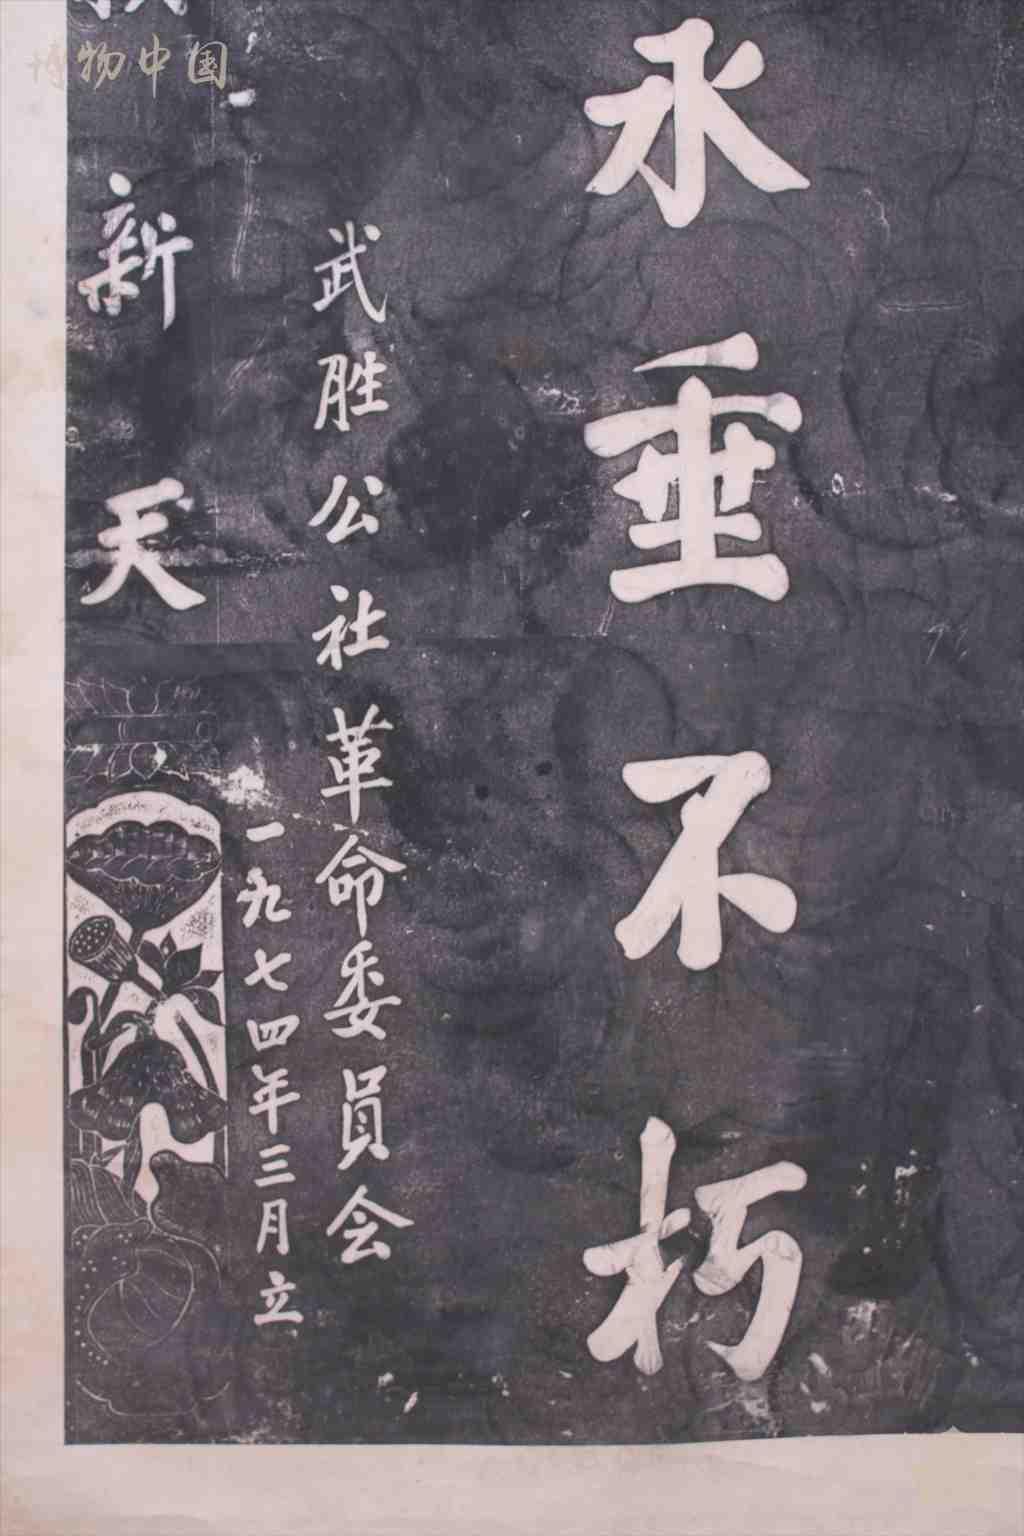 博物中国
永垂不朽
武胜公社革命委員会
一九七四年三月立
新天